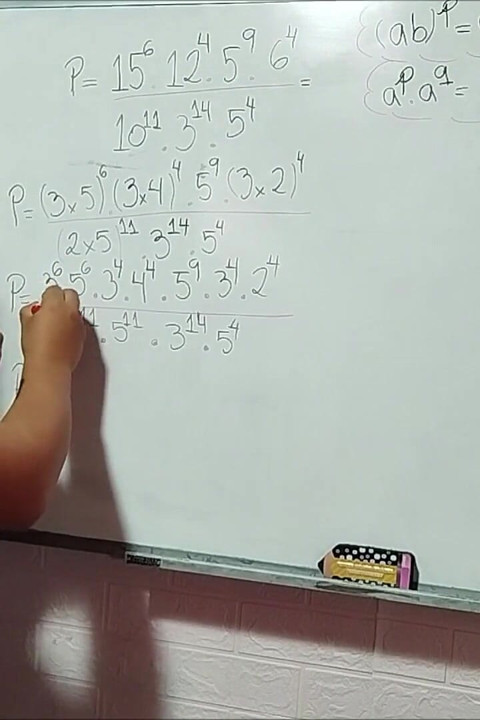 P = 15⁶ . 12⁴ . 5⁹ . 6⁴ =
10¹¹ . 3¹⁴ . 5⁴
(ab)ᵖ =
aᵖ . a^q =
P = (3×5)⁶ . (3×4)⁴ . 5⁹ . (3×2)⁴
(2×5)¹¹ . 3¹⁴ . 5⁴
P = 3⁶ 5⁶ . 3⁴ . 4⁴ . 5⁹ . 3⁴ . 2⁴
¹¹ . 5¹¹ . 3¹⁴ . 5⁴